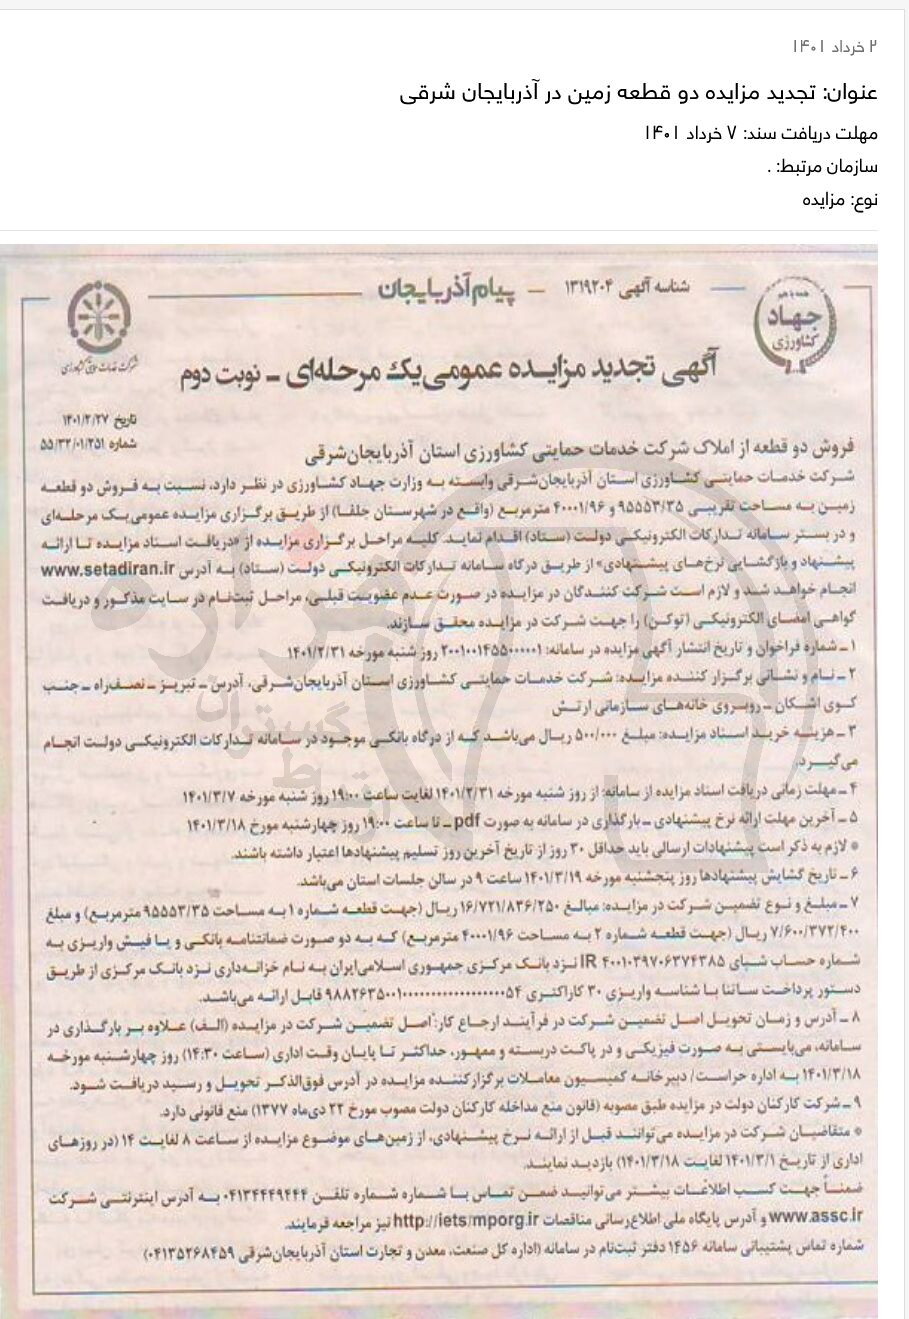 ۲ خرداد ۱۴۰۱
عنوان: تجدید مزایده دو قطعه زمین در آذربایجان شرقی
مهلت دریافت سند: ۷ خرداد ۱۴۰۱
سازمان مرتبط: .
نوع: مزایده
همه با هم
جهاد
کشاورزی
شناسه آگهی ۱۳۱۹۲۰۴
پیام آذربایجان
شرکت خدمات حمایتی کشاورزی
آگهی تجدید مزایده عمومی یک مرحله‌ای ـ نوبت دوم
تاریخ ۱۴۰۱/۲/۲۷
شماره ۵۵/۳۲/۰۱/۲۵۱
فروش دو قطعه از املاک شرکت خدمات حمایتی کشاورزی استان آذربایجان‌شرقی
شرکت خدمات حمایتی کشاورزی استان آذربایجان‌شرقی وابسته به وزارت جهاد کشاورزی در نظر دارد، نسبت به فروش دو قطعه
زمین به مساحت تقریبی ۹۵۵۵۳/۳۵ و ۴۰۰۰۱/۹۶ مترمربع (واقع در شهرستان جلفا) از طریق برگزاری مزایده عمومی یک مرحله‌ای
و در بستر سامانه تدارکات الکترونیکی دولت (ستاد) اقدام نماید. کلیه مراحل برگزاری مزایده از «دریافت اسناد مزایده تا ارائه
پیشنهاد و بازگشایی نرخ‌های پیشنهادی» از طریق درگاه سامانه تدارکات الکترونیکی دولت (ستاد) به آدرس www.setadiran.ir
انجام خواهد شد و لازم است شرکت کنندگان در مزایده در صورت عدم عضویت قبلی، مراحل ثبت‌نام در سایت مذکور و دریافت
گواهی امضای الکترونیکی (توکن) را جهت شرکت در مزایده محقق سازند.
۱ـ شماره فراخوان و تاریخ انتشار آگهی مزایده در سامانه: ۲۰۰۱۰۰۱۴۵۵۰۰۰۰۰۱ روز شنبه مورخه ۱۴۰۱/۲/۳۱
۲ـ نام و نشانی برگزار کننده مزایده: شرکت خدمات حمایتی کشاورزی استان آذربایجان‌شرقی، آدرس ـ تبریز ـ نصف‌راه ـ جنب
کوی اشکان ـ روبروی خانه‌های سازمانی ارتش
۳ـ هزینه خرید اسناد مزایده: مبلغ ۵۰۰/۰۰۰ ریال می‌باشد که از درگاه بانکی موجود در سامانه تدارکات الکترونیکی دولت انجام
می‌گیرد.
۴ـ مهلت زمانی دریافت اسناد مزایده از سامانه: از روز شنبه مورخه ۱۴۰۱/۲/۳۱ لغایت ساعت ۱۹:۰۰ روز شنبه مورخه ۱۴۰۱/۳/۷
۵ـ آخرین مهلت ارائه نرخ پیشنهادی ـ بارگذاری در سامانه به صورت pdf ـ تا ساعت ۱۹:۰۰ روز چهارشنبه مورخ ۱۴۰۱/۳/۱۸
* لازم به ذکر است پیشنهادات ارسالی باید حداقل ۳۰ روز از تاریخ آخرین روز تسلیم پیشنهادها اعتبار داشته باشند.
۶ـ تاریخ گشایش پیشنهادها روز پنجشنبه مورخه ۱۴۰۱/۳/۱۹ ساعت ۹ در سالن جلسات استان می‌باشد.
۷ـ مبلغ و نوع تضمین شرکت در مزایده: مبالغ ۱۶/۷۲۱/۸۳۶/۲۵۰ ریال (جهت قطعه شماره ۱ به مساحت ۹۵۵۵۳/۳۵ مترمربع) و مبلغ
۷/۶۰۰/۳۷۲/۴۰۰ ریال (جهت قطعه شماره ۲ به مساحت ۴۰۰۰۱/۹۶ مترمربع) که به دو صورت ضمانتنامه بانکی و یا فیش واریزی به
شماره حساب شبای IR ۴۰۰۱۰۳۹۷۰۶۳۷۴۳۸۵ نزد بانک مرکزی جمهوری اسلامی‌ایران به نام خزانه‌داری نزد بانک مرکزی از طریق
دستور پرداخت ساتنا با شناسه واریزی ۳۰ کاراکتری قابل ارائه می‌باشد.
۸ـ آدرس و زمان تحویل اصل تضمین شرکت در فرآیند ارجاع کار: اصل تضمین شرکت در مزایده (الف) علاوه بر بارگذاری در
سامانه، می‌بایستی به صورت فیزیکی و در پاکت دربسته و ممهور، حداکثر تا پایان وقت اداری (ساعت ۱۴:۳۰) روز چهارشنبه مورخه
۱۴۰۱/۳/۱۸ به اداره حراست/ دبیرخانه کمیسیون معاملات برگزارکننده مزایده در آدرس فوق‌الذکر تحویل و رسید دریافت شود.
۹ـ شرکت کارکنان دولت در مزایده طبق مصوبه (قانون منع مداخله کارکنان دولت مصوب مورخ ۲۲ دی‌ماه ۱۳۷۷) منع قانونی دارد.
* متقاضیان شرکت در مزایده می‌توانند قبل از ارائه نرخ پیشنهادی، از زمین‌های موضوع مزایده از ساعت ۸ لغایت ۱۴ (در روزهای
اداری از تاریخ ۱۴۰۱/۳/۱ لغایت ۱۴۰۱/۳/۱۸) بازدید نمایند.
ضمناً جهت کسب اطلاعات بیشتر می‌توانید ضمن تماس با شماره شماره تلفن ۰۴۱۳۴۴۴۹۴۴۴ به آدرس اینترنتی شرکت
www.assc.ir و آدرس پایگاه ملی اطلاع‌رسانی مناقصات http://iets/mporg.ir نیز مراجعه فرمایند.
شماره تماس پشتیبانی سامانه ۱۴۵۶ دفتر ثبت‌نام در سامانه (اداره کل صنعت، معدن و تجارت استان آذربایجان‌شرقی ۰۴۱۳۵۲۶۸۴۵۹)